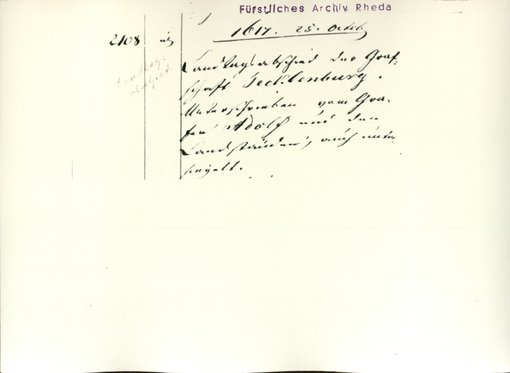 Fürstliches Archiv Rheda
1617. 25. Octb
2108
Landtagsabschied der Graf-
schaft Tecklenburg.
Unterschrieben vom Gra-
fen Adolf und den
Landständen, auch unter-
siegelt.